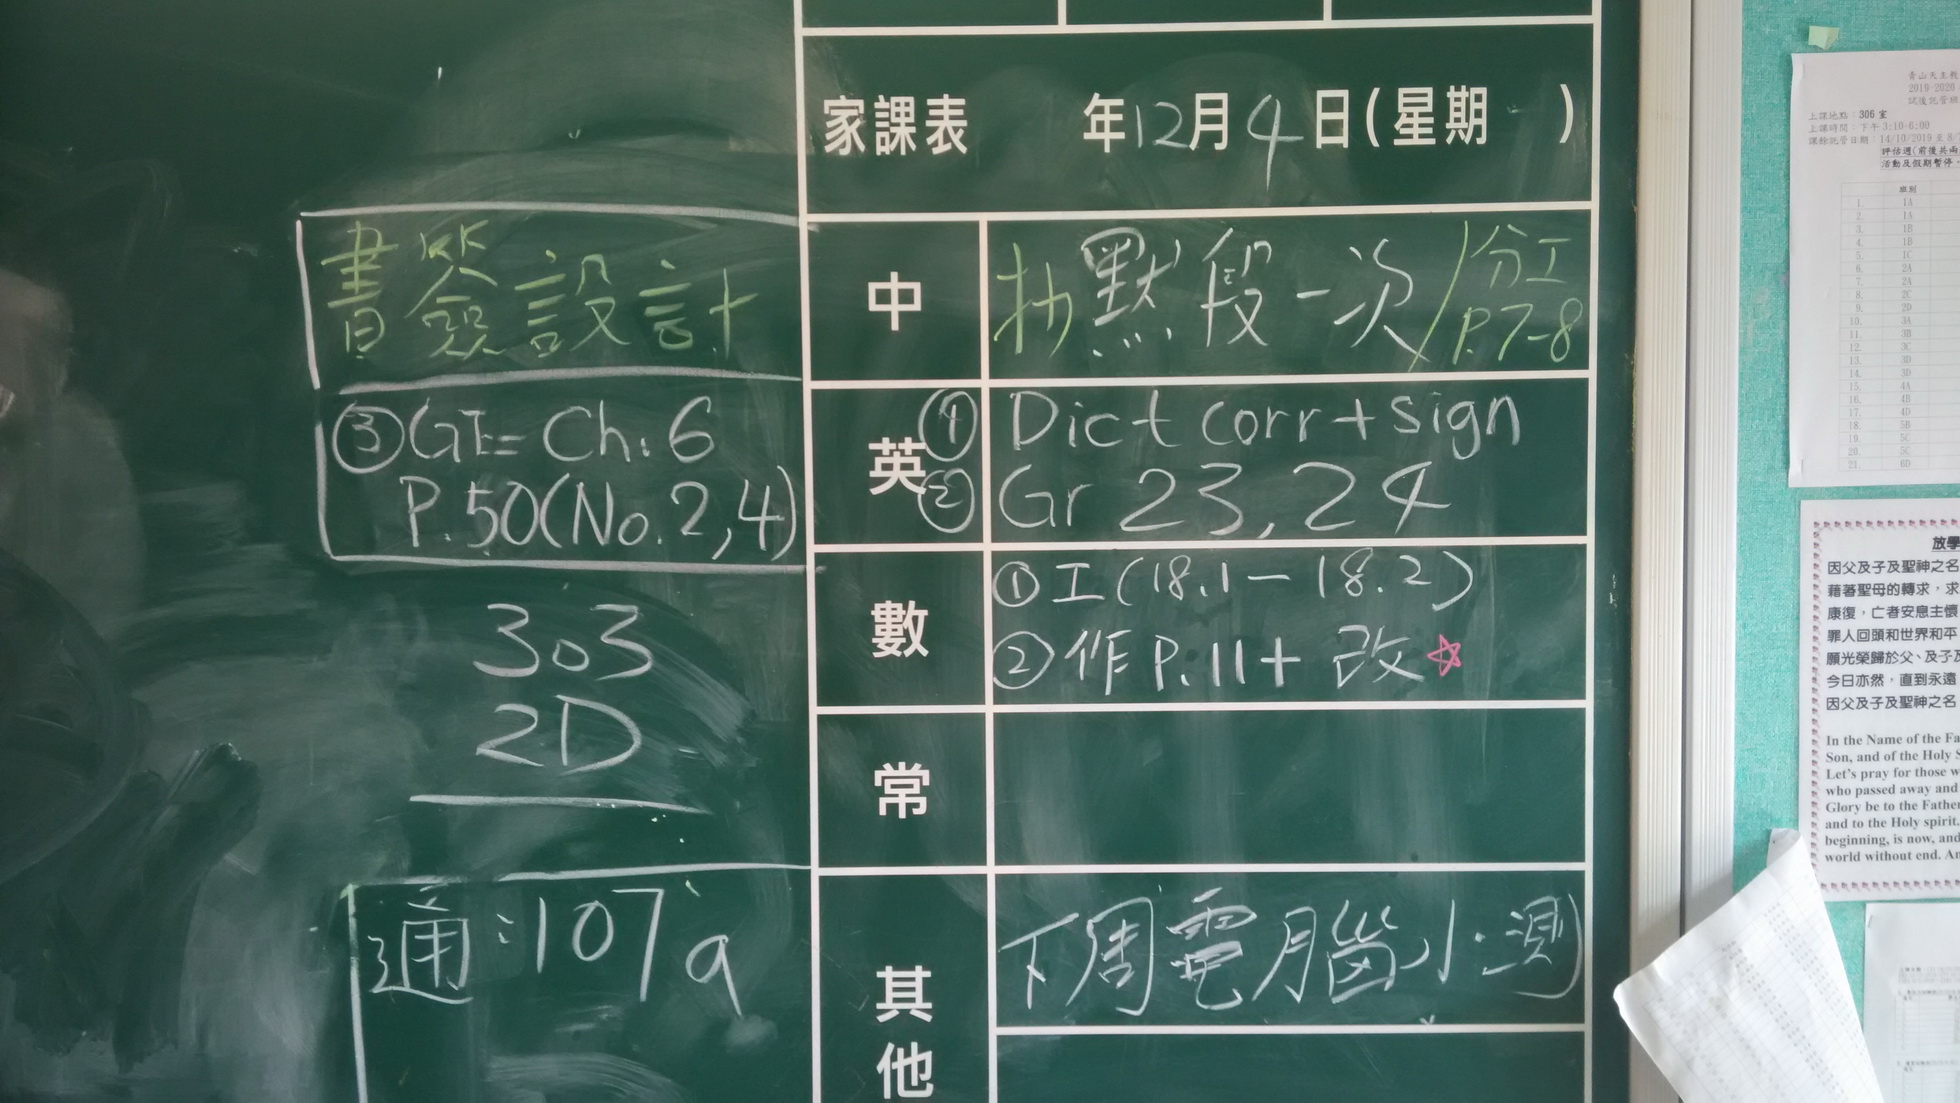 家課表 年12月4日(星期 )
書簽設計
中 抄默段一次/分工
P.7-8
英 ① Dict corr + sign
② Gr 23, 24
③ GE= Ch. 6
P.50(No. 2, 4)
數 ① 工(18.1 — 18.2)
② 作 P.11 + 改☆
303
2D
常
通:107a
其他 下周電腦小測
2019-2020
上課地點:306 室
上課時間:下午 3:10-6:00
班別
1. 1A
2. 1A
3. 1B
4. 1B
5. 1C
6. 2A
7. 2A
8. 2C
9. 2D
10. 3A
11. 3B
12. 3C
13. 3D
14. 3D
15. 4A
16. 4B
17. 4D
18. 5B
19. 5C
20. 5C
21. 6D
放學
因父及子及聖神之名
藉著聖母的轉求,求
康復,亡者安息主懷
罪人回頭和世界和平
願光榮歸於父、及子及
今日亦然,直到永遠
因父及子及聖神之名
In the Name of the Fa
Son, and of the Holy S
Let's pray for those w
who passed away and
Glory be to the Father
and to the Holy spirit.
beginning, is now, and
world without end. An